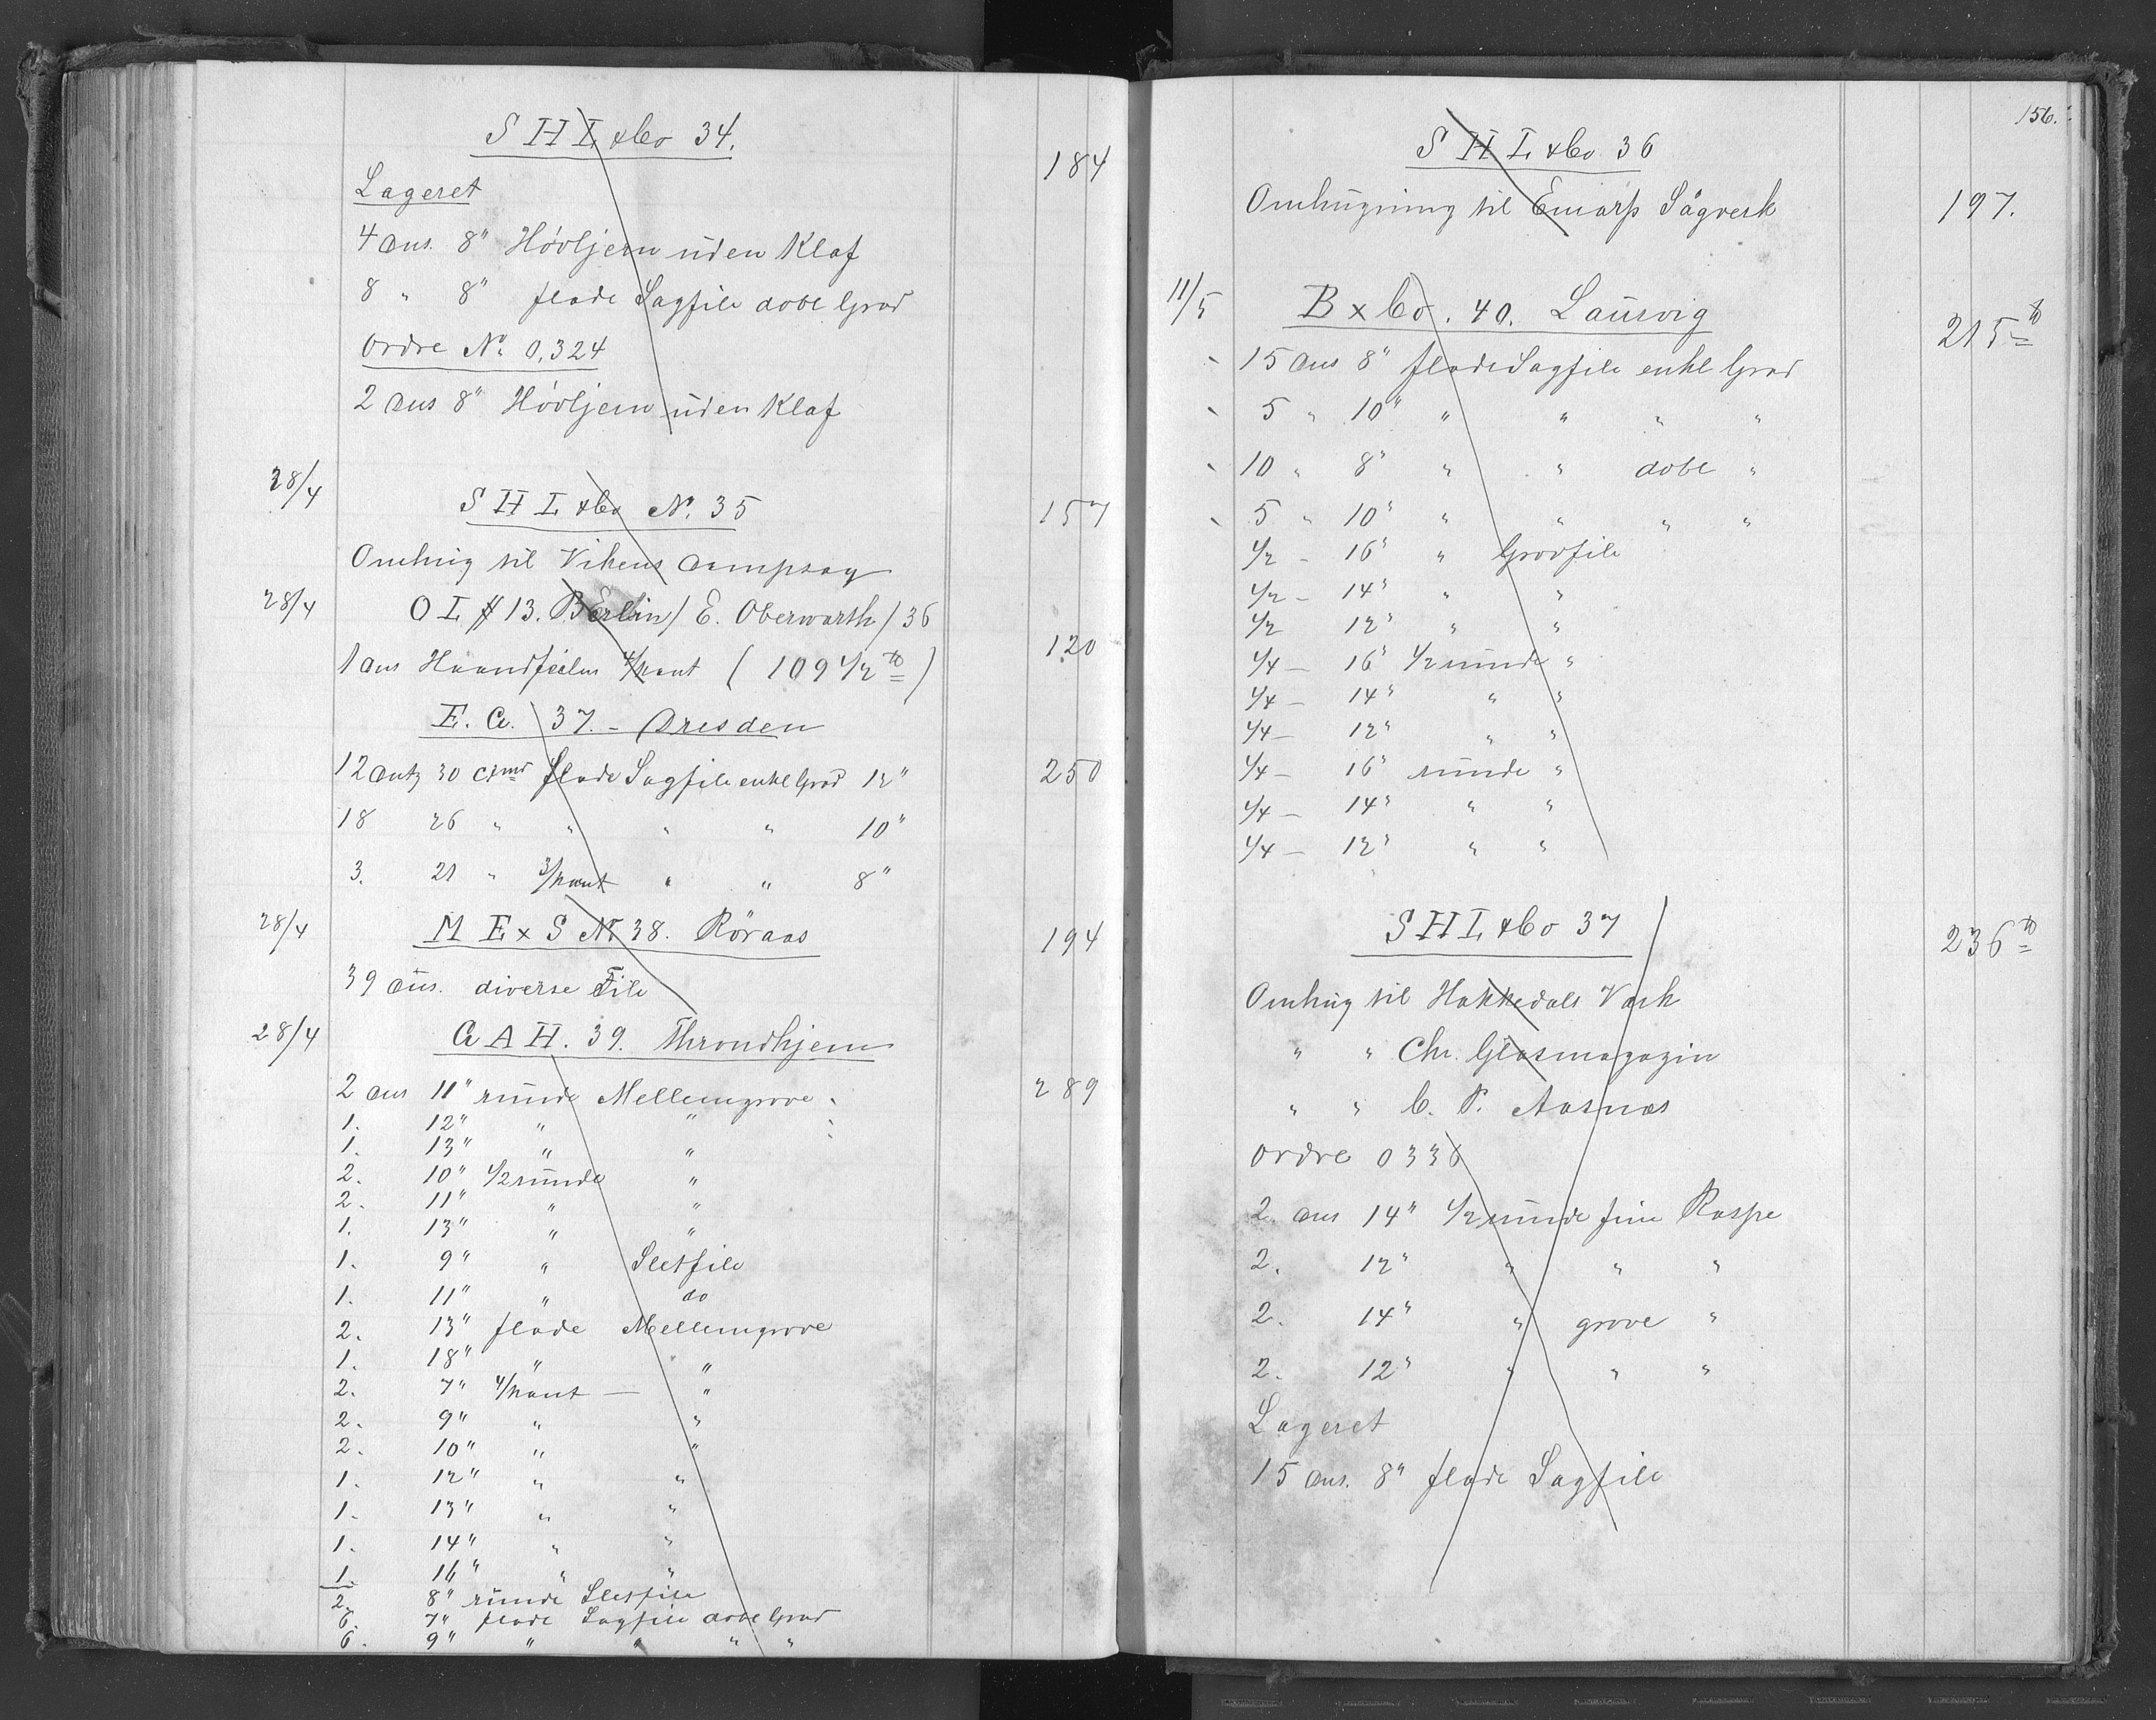 S H L & Co 34.
184
Lageret
4 Dus. 8" Høvljern uden Klaf
8 " 8" flade Sagfile dobl Grad
Ordre No. 0,324
2 Dus 8" Høvljern uden Klaf
28/4
S H L & Co No. 35
157
Omhug til Vikens Dampsag
28/4
O L # 13. Berlin / E. Oberwarth / 36
120
1 Dus Haandfiler 4/kant ( 109 1/2 ℔ )
E. G. 37. - Dresden
12 Dutz 30 c/m flade Sagfile enkl Grad 12"
250
18 26 " " " " 10"
3. 21 " 3/kant " " 8"
28/4
M E x S No 38. Röraas
194
39 Dus. diverse File
28/4
G A H. 39. Throndhjem
2 Dus 11" runde Mellemgrove
289
1. 12" " "
1. 13" " "
2. 10" 1/2 runde "
2. 11" " "
1. 13" " "
1. 9" " Sletfile
1. 11" " do
2. 13" flade Mellemgrove
1. 18" " "
2. 7" 4/kant — "
2. 9" " "
2. 10" " "
1. 12" " "
1. 13" " "
1. 14" " "
1. 16" " "
2. 8" runde Sletfile
6. 7" flade Sagfile dobl Grad
6. 9" " " " "
156.
S H L & Co 36
Omhugning til Emarp Sågverk
197.
11/5
B x Co. 40. Laurvig
215 ℔
15 Dus 8" flade Sagfile enkl Grad
5 " 10" " " " "
10 " 8" " " dobl "
5 " 10" " " " "
1/2 - 16" " Grovfile
1/2 - 14" " "
1/2 12" " "
1/4 - 16" 1/2 runde "
1/4 - 14" " "
1/4 - 12" " "
1/4 - 16" runde "
1/4 - 14" " "
1/4 - 12" " "
S H L & Co 37
236 ℔
Omhug til Hakkedals Værk
" " Chr. Glasmagazin
" " C. P. Aasnæs
Ordre 0336
2. Dus 14" 1/2 runde fine Raspe
2. 12" " " "
2. 14" " grove "
2. 12" " " "
Lageret
15 Dus. 8" flade Sagfile